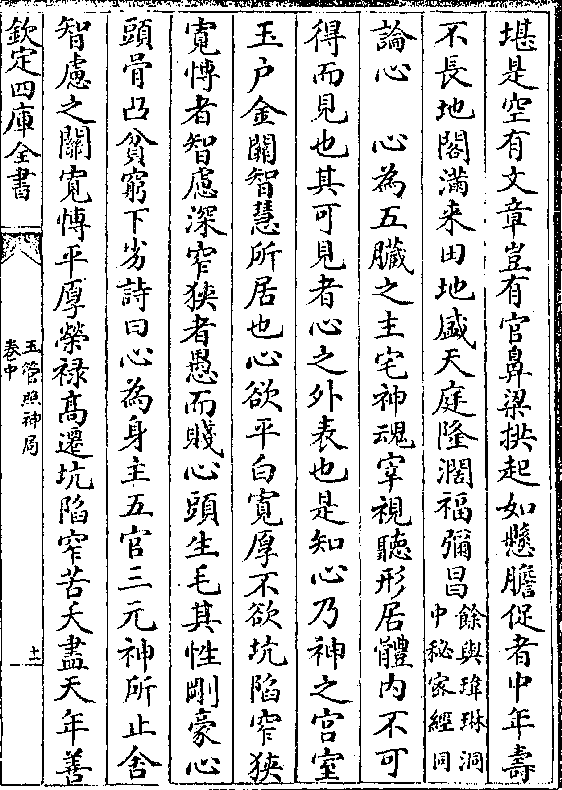 堪是空有文章豈有官鼻梁拱起如懸膽促者中年壽
不長地閣滿来田地盛天庭隆濶福彌昌餘與瑋琳洞中秘家經同
論心　心為五臟之主宅神魂宰視聽形居體内不可
得而見也其可見者心之外表也是知心乃神之宫室
玉户金關智慧所居也心欲平白寛厚不欲坑陷窄狹
寛愽者智慮深窄狹者愚而賤心頭生毛其性剛豪心
頭骨凸貧窮下劣詩曰心為身主五官三元神所止舍
智慮之關寛愽平厚榮禄髙遷坑陷窄苦夭盡天年善
欽定四庫全書
玉管照神局
卷中
十一